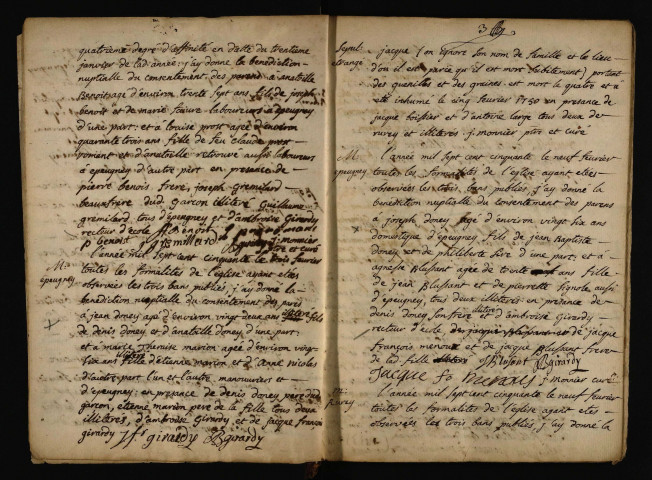 quatrieme degré d'affinité en datte du trentieme
janvier de lad. année; j'ay donné la benediction
nuptialle du consentement des parens a anatoille
Benoist agé d'environ trente sept ans fils de joseph
benoit et de marie faivre laboureurs a epeugney
d'une part: et a louise prost agée d'environ
quarante trois ans fille de feu claude prost
et d'anatoille aussi laboureurs
a epeugney d'autre part en presence de
pierre benoit frere, joseph gremilard
beaufrere dud. garcon illiteré Guillaume
gremilard tous d'epeugney et d'ambroise Girardy
recteur d'école
p benoit j: monnier
ptre et curé
M. l'année mil sept cent cinquante le trois fevrier
epeugney toutes les formalités de l'eglise ayant etées
observées les trois bans publiés, j'ay donné la
benediction nuptialle du consentement des parens
a jean doney agé d'environ vingt deux ans fils
de denis doney et d'anatoille doney d'une part:
et a marie Therese marion agée d'environ vingt
six ans fille d'étienne marion et d'Anne nicolas
d'autre part l'un et l'autre manouvriers et
d'epeugney: en presence de denis doney pere dud.
garcon, etienne marion pere de la fille tous deux
illiterés, d'ambroise Girardy et de jacque francois
girardy J f girardy Girardy
3
Sepult. jacque (on ignore son nom de famille et le lieu
etrange d'ou il est parce qu'il est mort subitement) portant
des guenilles et des graines est mort le quatre et a
eté inhumé le cinq fevrier 1750 en presence de
jacque boissier et d'antoine large tous deux de
rurey et illiterés j. monnier ptre et curé
M. l'année mil sept cent cinquante le neuf fevrier
epeugney toutes les formalités de l'eglise ayant etées
observées les trois bans publiés, j'ay donné la
benediction nuptialle du consentement des parens
a joseph doney agé d'environ vingt six ans
domestique d'epeugney fils de jean Baptiste
doney et de philiberte d'une part, et a
agnesse Blussant agée de trente ans fille
de jean Blussant et de pierrette aussi
d'epeugney, tous deux illiterés: en presence de
denis doney son frere illiteré d'ambroise Girardy
recteur d'école de jacque
francois menoux et de jacque Blussant frere
de lad. fille JBlusont Girardy
Jacque f menoux j: monnier curé
M. l'année mil sept cent cinquante le neuf fevrier
rurey toutes les formalités de l'eglise ayant etées
observées les trois bans publiés, j'ay donné la